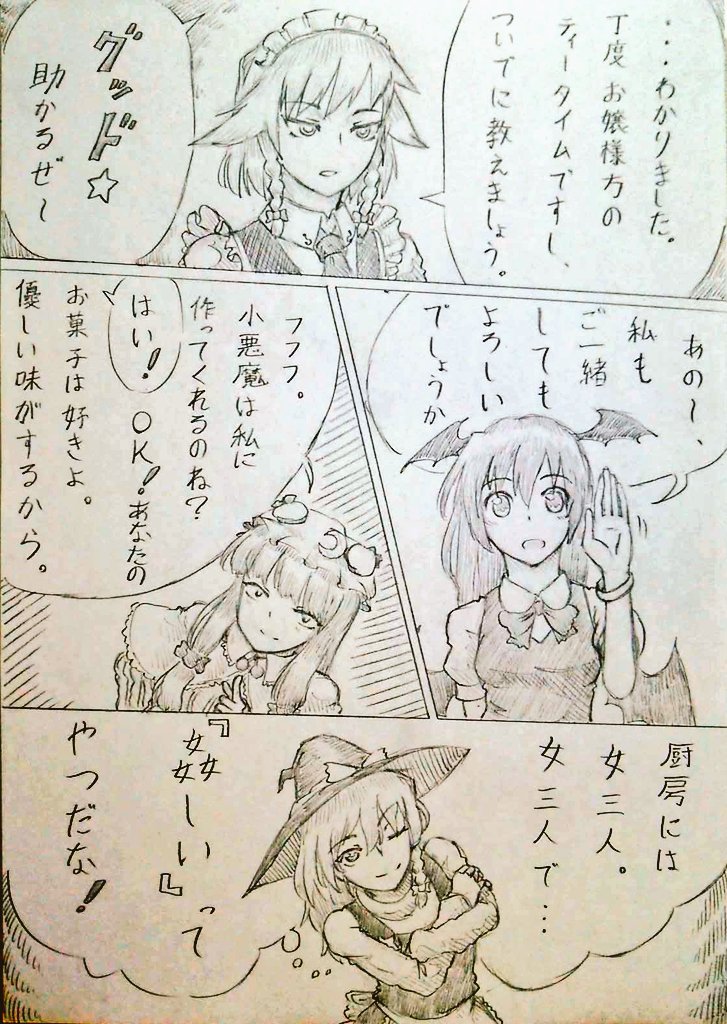 ・・・わかりました。
丁度 お嬢様方の
ティータイムですし、
ついでに教えましょう。
グッド☆
助かるぜ～
あの～、
私も
ご一緒
しても
よろしい
でしょうか
フフフ。
小悪魔は私に
作ってくれるのね？
はい！
OK！あなたの
お菓子は好きよ。
優しい味がするから。
厨房には
女三人。
女三人で・・・
『姦しい』って
やつだな！